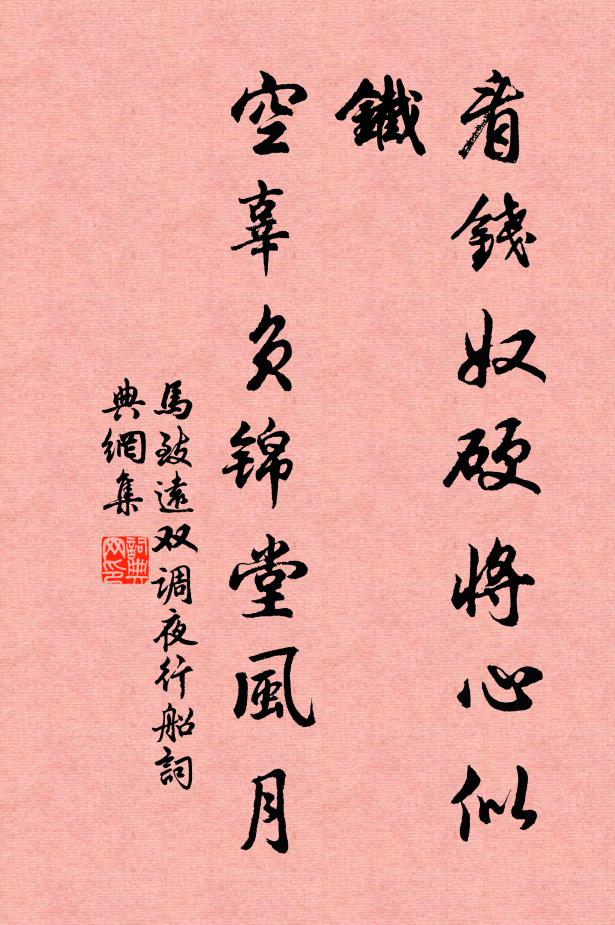 看錢奴硬將心似
鐵
空辜負錦堂風月
馬致遠双调夜行船詞
典網集
詞典網印